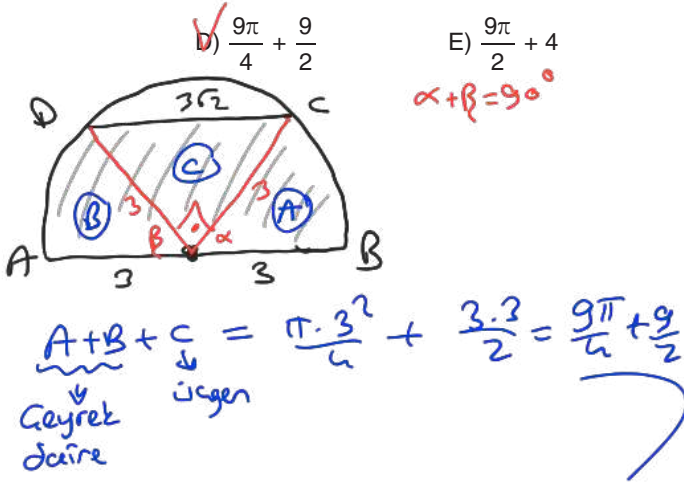 D) 9π/4 + 9/2 E) 9π/2 + 4
α+β=90°
D 3√2 C
C
B 3 3 A
β α
A 3 3 B
A+B+C = π·3²/4 + 3·3/2 = 9π/4 + 9/2
Çeyrek daire
üçgen